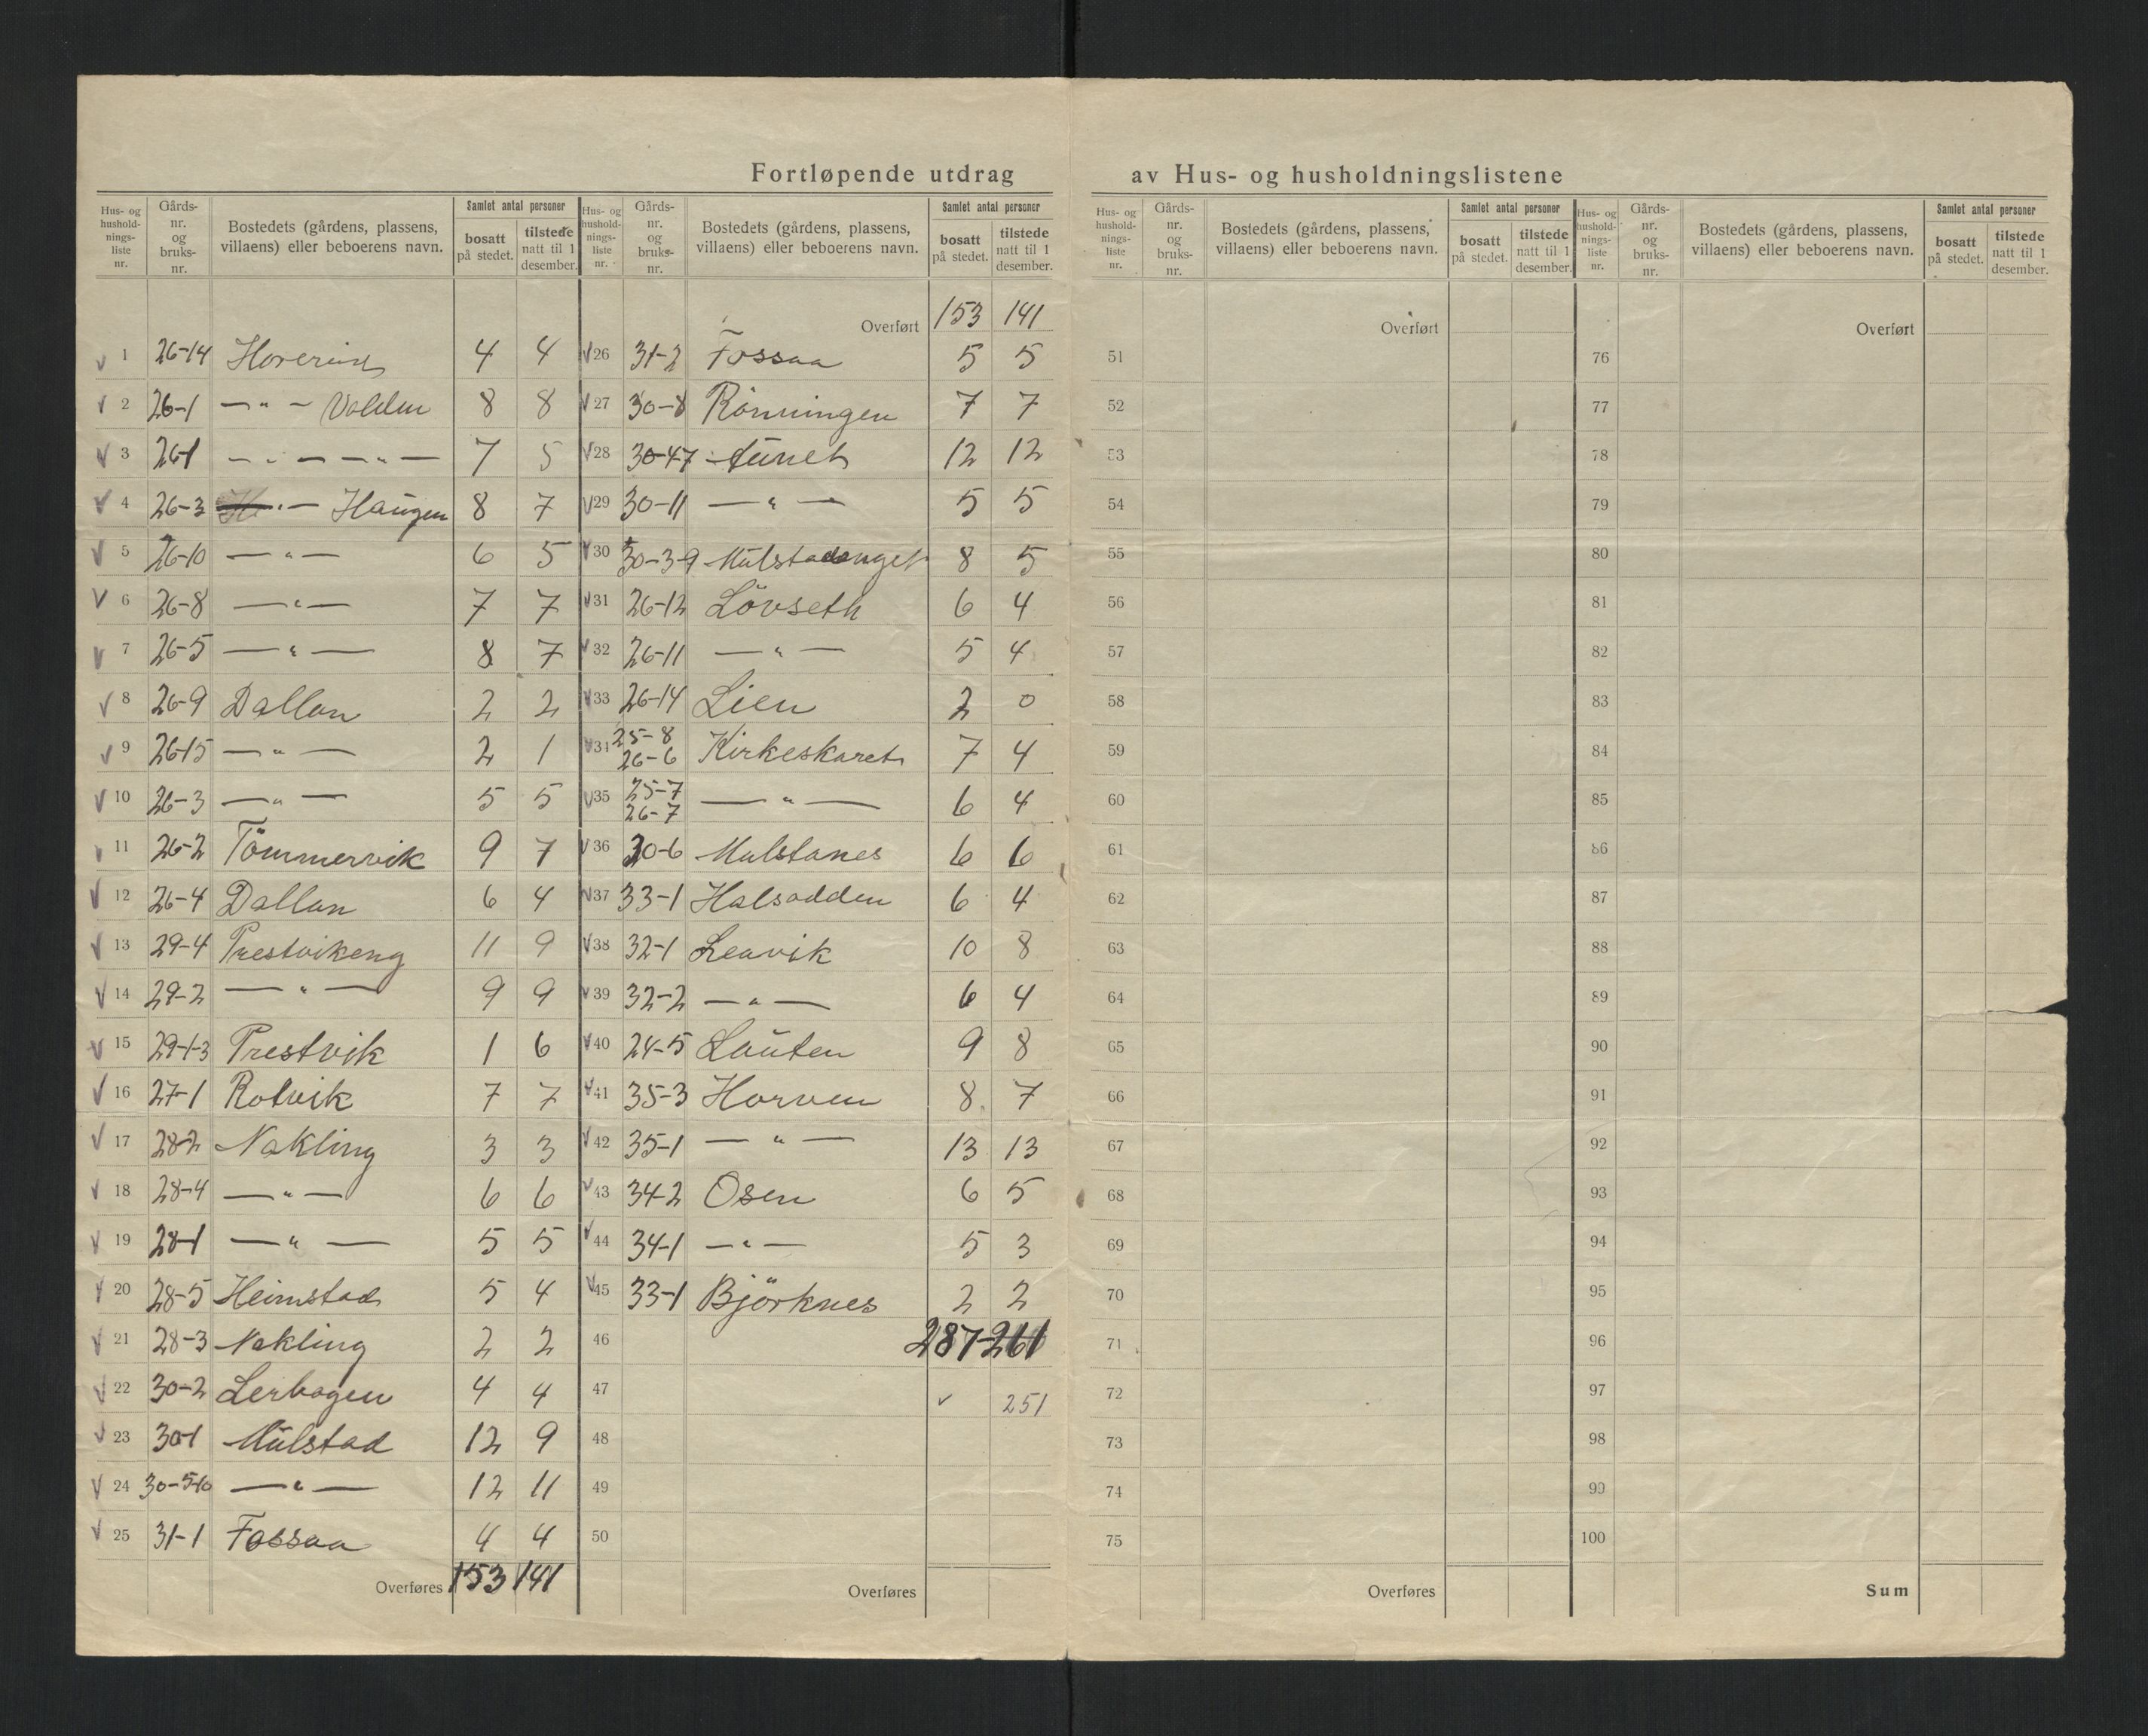 Fortløpende utdrag av Hus- og husholdningslistene
Hus- og hushold-nings-liste nr. Gårds-nr. og bruks-nr. Bostedets (gårdens, plassens, villaens) eller beboerens navn. Samlet antal personer bosatt på stedet. tilstede natt til 1 desember.
1 26-14 4 4
2 26-1 —"— Vollen 8 8
3 26-1 — " — — " — 7 5
4 26-3 —"— Haugen 8 7
5 26-10 —"— 6 5
6 26-8 —"— 7 7
7 26-5 —"— 8 7
8 26-9 Dallan 2 2
9 26-15 —"— 2 1
10 26-3 —"— 5 5
11 26-2 Tömmervik 9 7
12 26-4 Dallan 6 4
13 29-4 Prestvikeng 11 9
14 29-2 —"— 9 9
15 29-1-3 Prestvik 1 6
16 27-1 Rotvik 7 7
17 28-2 Nakling 3 3
18 28-4 —"— 6 6
19 28-1 —"— 5 5
20 28-5 Heimstad 5 4
21 28-3 Nakling 2 2
22 30-2 Lerbagen 4 4
23 30-1 Mulstad 12 9
24 30-5-10 —"— 12 11
25 31-1 Fossaa 4 4
Overføres 153 141
Hus- og hushold-nings-liste nr. Gårds-nr. og bruks-nr. Bostedets (gårdens, plassens, villaens) eller beboerens navn. Samlet antal personer bosatt på stedet. tilstede natt til 1 desember.
Overført 153 141
26 31-2 Fossaa 5 5
27 30-8 Rönningen 7 7
28 30-47 Tunet 12 12
29 30-11 —"— 5 5
30 30-3-9 8 5
31 26-12 Lövseth 6 4
32 26-11 —"— 5 4
33 26-14 Lien 2 0
34 25-8 26-6 Kirkeskaret 7 4
35 25-7 26-7 —"— 6 4
36 30-6 Mulstanes 6 6
37 33-1 Halsodden 6 4
38 32-1 Leavik 10 8
39 32-2 —"— 6 4
40 24-5 Lauten 9 8
41 35-3 Horven 8 7
42 35-1 —"— 13 13
43 34-2 Osen 6 5
44 34-1 —"— 5 3
45 33-1 Björknes 2 2
46 287-261
47 ✓ 251
48
49
50
Overføres
Hus- og hushold-nings-liste nr. Gårds-nr. og bruks-nr. Bostedets (gårdens, plassens, villaens) eller beboerens navn. Samlet antal personer bosatt på stedet. tilstede natt til 1 desember.
Overført
51
52
53
54
55
56
57
58
59
60
61
62
63
64
65
66
67
68
69
70
71
72
73
74
75
Overføres
Hus- og hushold-nings-liste nr. Gårds-nr. og bruks-nr. Bostedets (gårdens, plassens, villaens) eller beboerens navn. Samlet antal personer bosatt på stedet. tilstede natt til 1 desember.
Overført
76
77
78
79
80
81
82
83
84
85
86
87
88
89
90
91
92
93
94
95
96
97
98
99
100
Sum